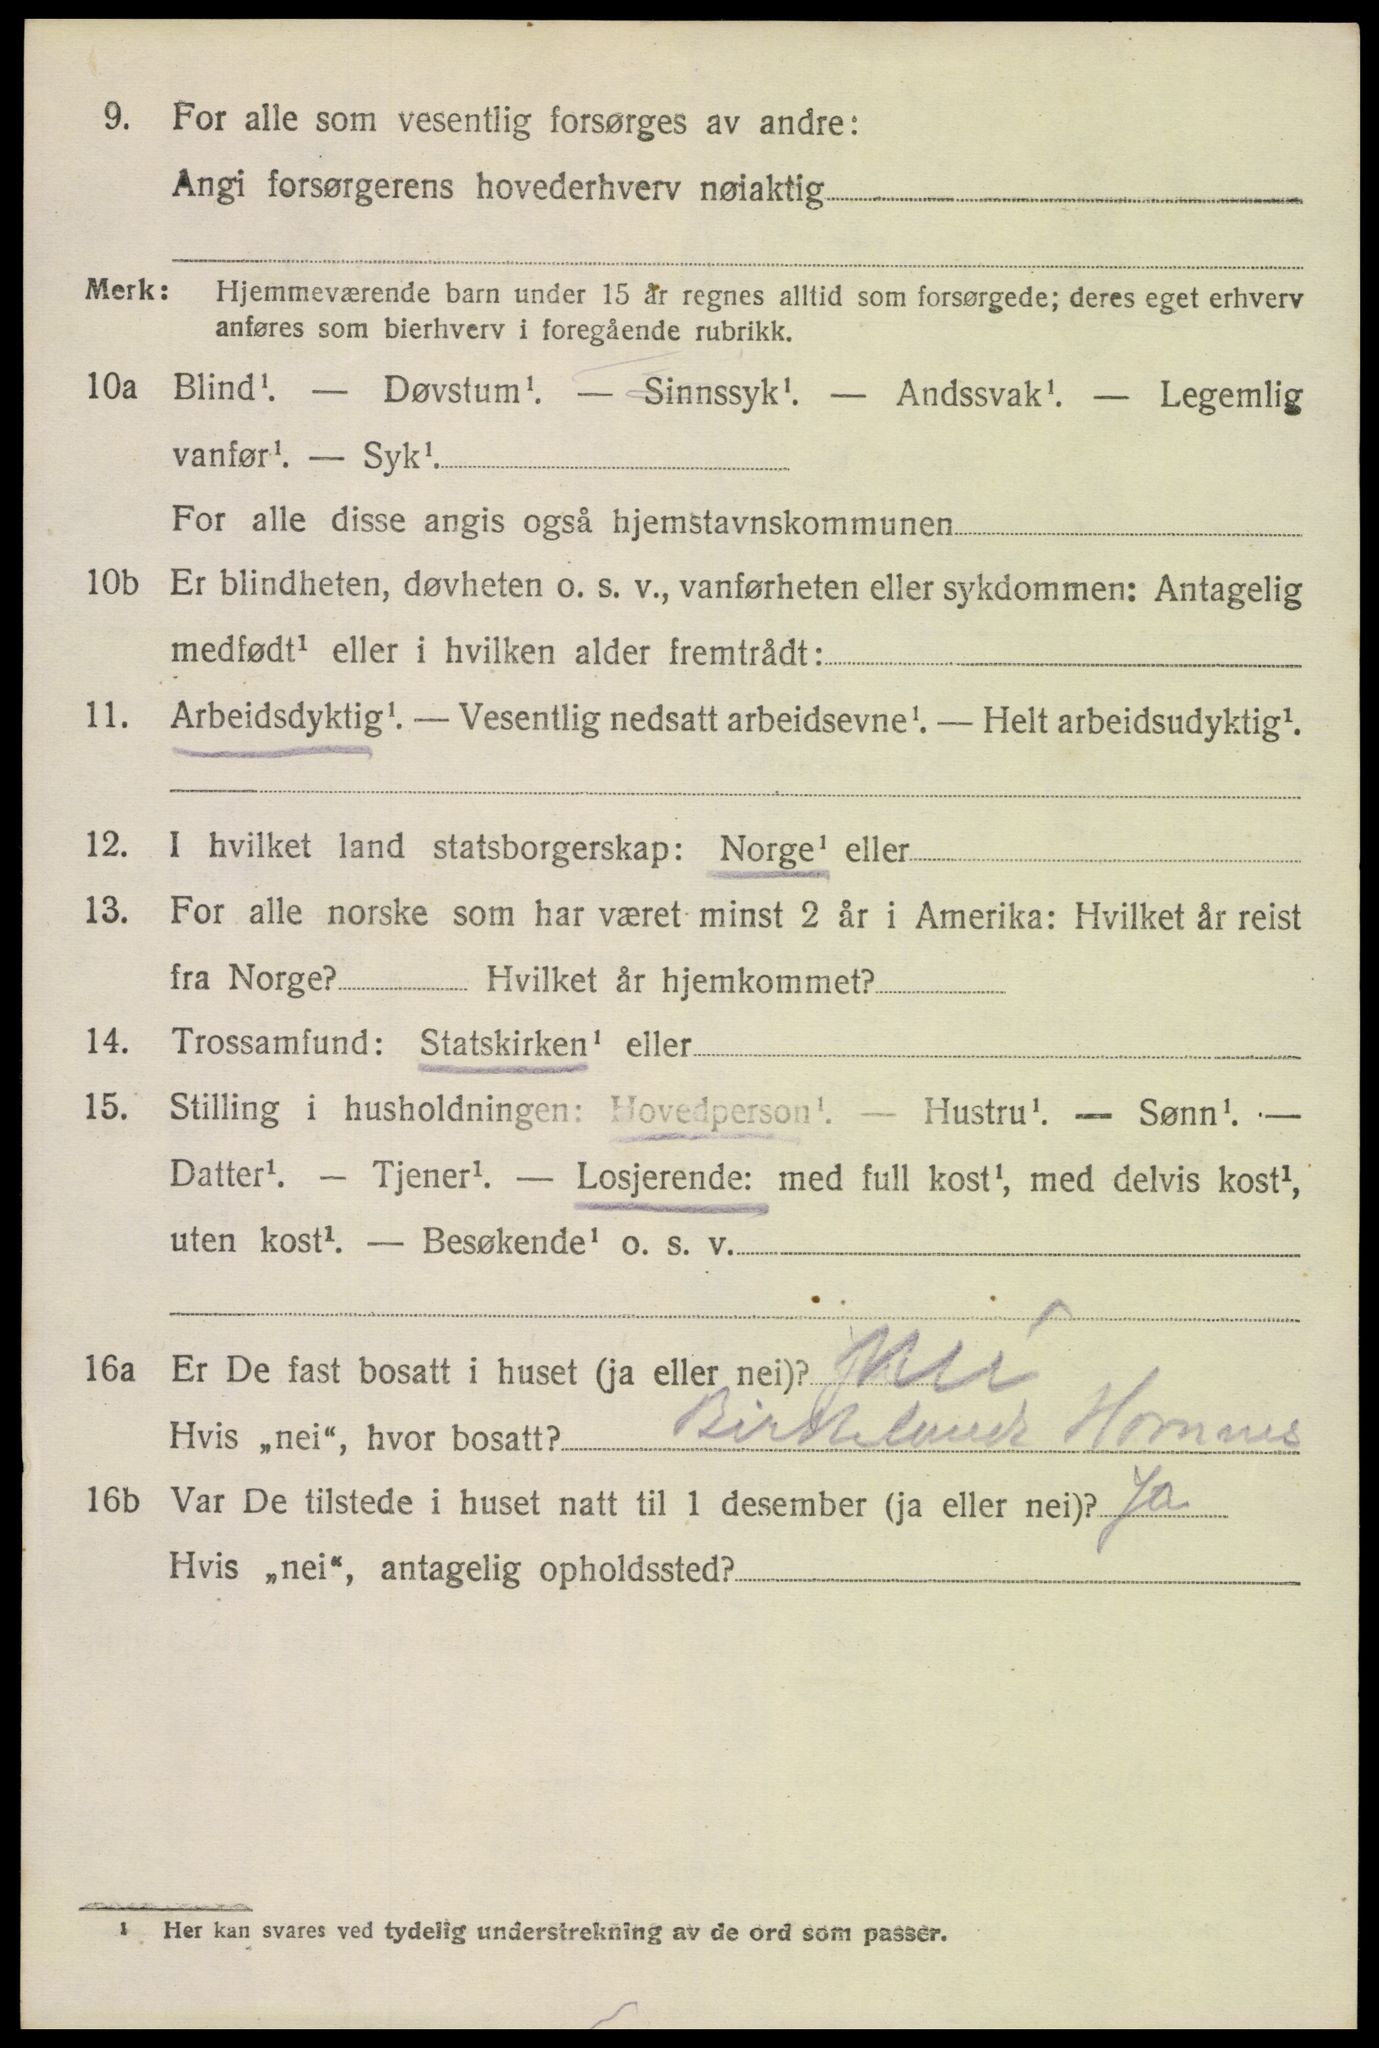 9. For alle som vesentlig forsørges av andre:
Angi forsørgerens hovederhverv nøiaktig
Merk: Hjemmeværende barn under 15 år regnes alltid som forsørgede; deres eget erhverv
anføres som bierhverv i foregående rubrikk.
10a Blind¹. — Døvstum¹. — Sinnssyk¹. — Andssvak¹. — Legemlig
vanfør¹. — Syk¹.
For alle disse angis også hjemstavnskommunen
10b Er blindheten, døvheten o. s. v., vanførheten eller sykdommen: Antagelig
medfødt¹ eller i hvilken alder fremtrådt:
11. Arbeidsdyktig¹. — Vesentlig nedsatt arbeidsevne¹. — Helt arbeidsudyktig¹.
12. I hvilket land statsborgerskap: Norge¹ eller
13. For alle norske som har været minst 2 år i Amerika: Hvilket år reist
fra Norge? Hvilket år hjemkommet?
14. Trossamfund: Statskirken¹ eller
15. Stilling i husholdningen: Hovedperson¹. — Hustru¹. — Sønn¹. —
Datter¹. — Tjener¹. — Losjerende: med full kost¹, med delvis kost¹,
uten kost¹. — Besøkende¹ o. s. v.
16a Er De fast bosatt i huset (ja eller nei)? Nei
Hvis „nei“, hvor bosatt? Birkeland Hornnes
16b Var De tilstede i huset natt til 1 desember (ja eller nei)? Ja
Hvis „nei“, antagelig opholdssted?
1 Her kan svares ved tydelig understrekning av de ord som passer.